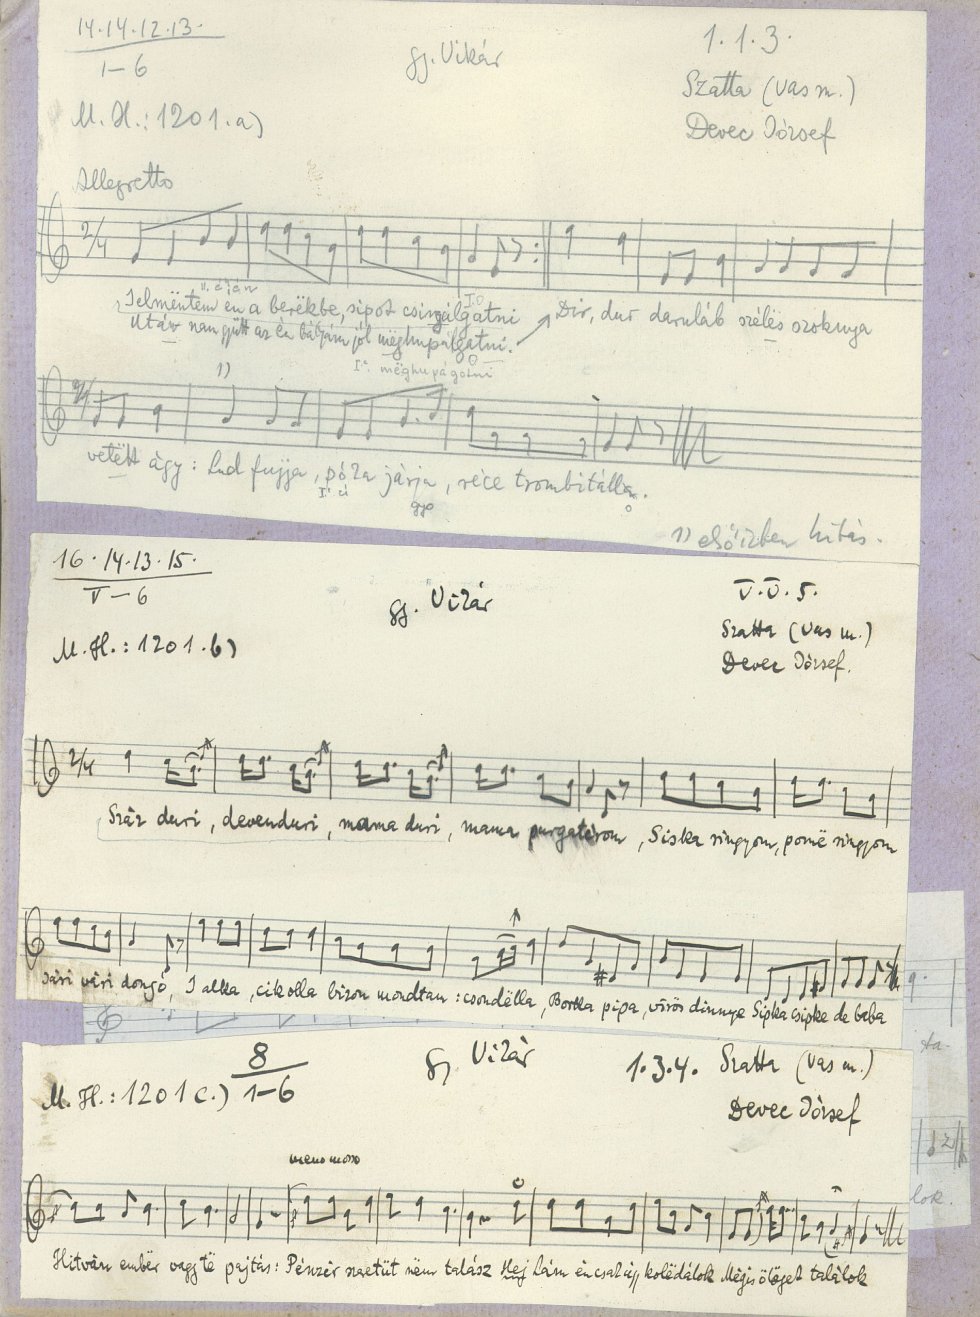 14.14.12.13.
1–6
gj. Vikár
1.1.3.
Szatta (Vas m.)
Devec József
M. H.: 1201.a)
Allegretto
2/4
Ielmëntem én a berëkbe, sipot csinálgatni Dir, dur daruláb szélës szoknya
Után nam gyütt az én bátyám jól mëghupálgatni.
I. mëghupágotni
1)
vetëtt ágy: Lud fujja, póka járja, réce trombitálla.
1) elsőízben hibás.
16.14.13.15.
V–6
gj. Vikár
V.V.5.
Szatta (Vas m.)
Devec József.
M. H.: 1201.b)
2/4
Száz duri, devenduri, mama duri, mama purgatérom, Siska ringyom, pomë ringyom
vári dongó, I alka, cikolla bizon mondtam: csondëlla, Bortka pipa, vörös dinnye Sipka csipke de baba
M. H.: 1201 c.)
8
1–6
gj. Vikár
1.3.4. Szatta (Vas m.)
Devec József
meno mosso
Hitván embër vagy të pajtás: Pénzér szaetüt nëm talász Hej Lám én csak úgy kolëdálok Mégis ölöget találok
ta-
lok.